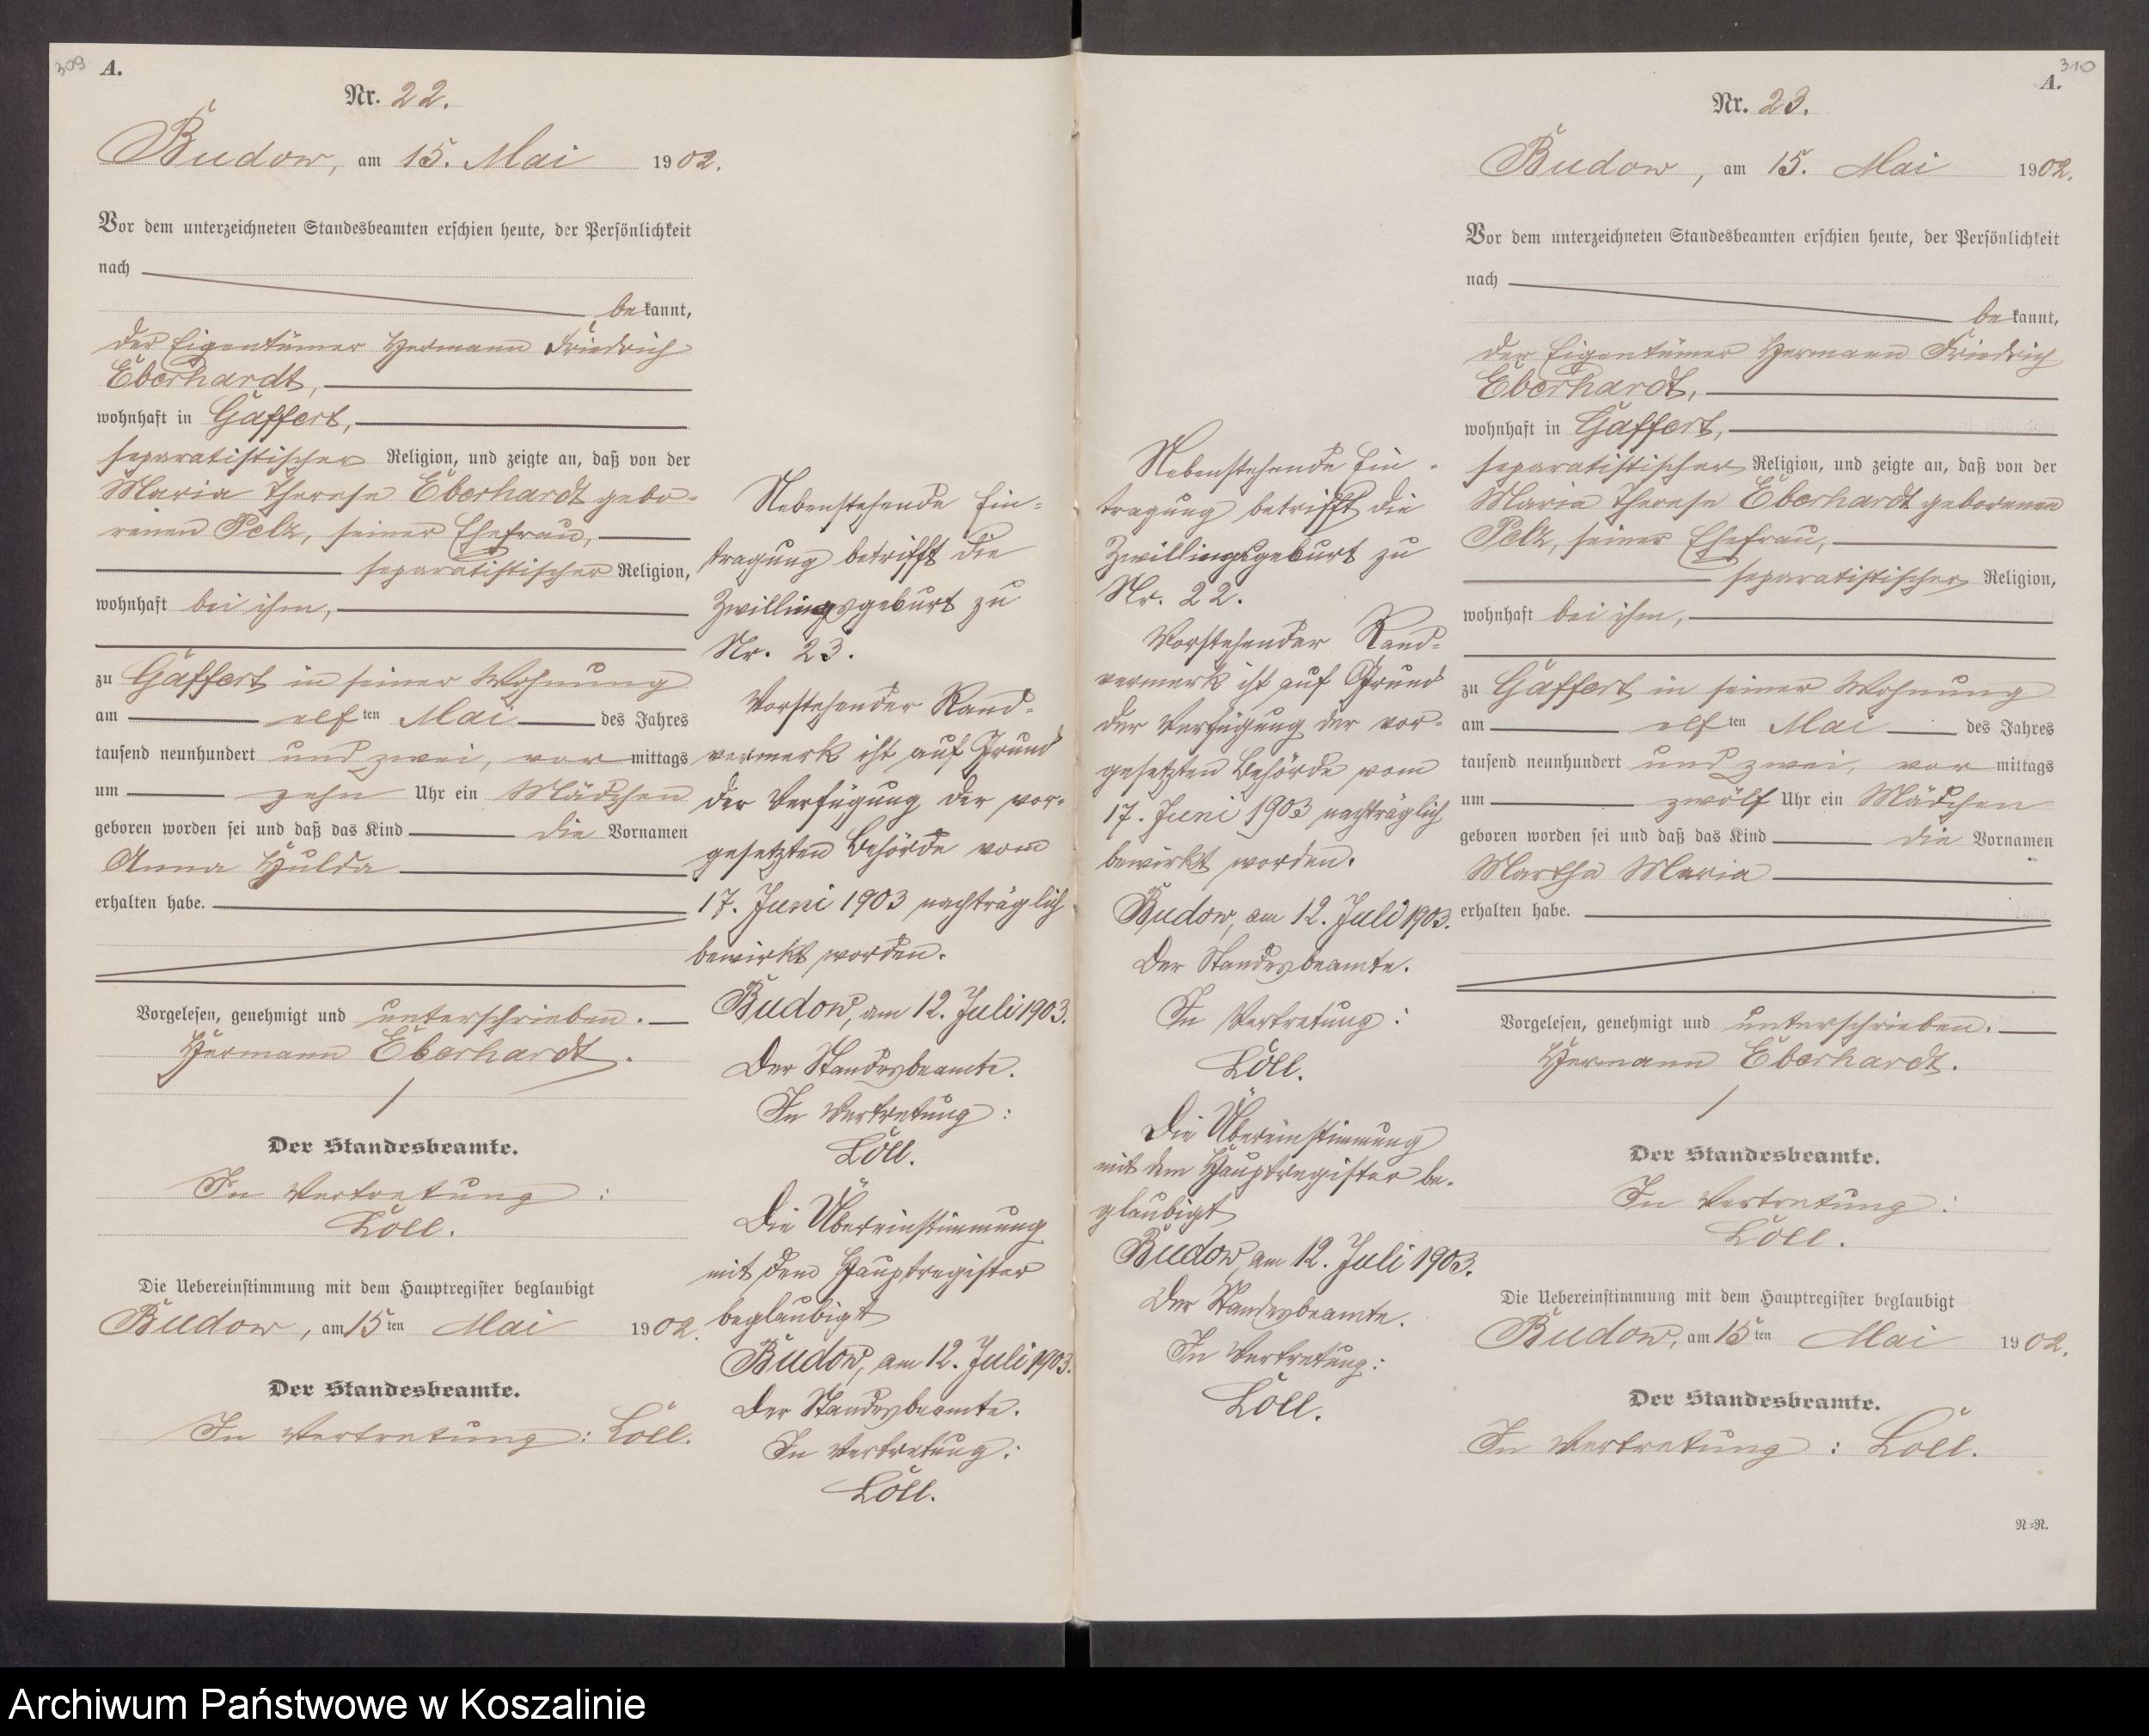 309
A.
Nr. 22.
Budow, am 15. Mai 1902.
Vor dem unterzeichneten Standesbeamten erschien heute, der Persönlichkeit
nach
bekannt,
der Eigentümer Hermann Friedrich
Eberhardt,
wohnhaft in Gaffert,
separatistischer Religion, und zeigte an, daß von der
Maria Therese Eberhardt gebo-
renen Pelz, seiner Ehefrau,
separatistischer Religion,
wohnhaft bei ihm,
zu Gaffert in seiner Wohnung
am elf ten Mai des Jahres
tausend neunhundert und zwei, vor mittags
um zehn Uhr ein Mädchen
geboren worden sei und daß das Kind die Vornamen
Anna Hulda
erhalten habe.
Vorgelesen, genehmigt und unterschrieben.
Hermann Eberhardt.
Der Standesbeamte.
In Vertretung:
Löll.
Die Uebereinstimmung mit dem Hauptregister beglaubigt
Budow, am 15ten Mai 1902.
Der Standesbeamte.
In Vertretung: Löll.
Nebenstehende Ein-
tragung betrifft die
Zwillingsgeburt zu
Nr. 23.
Vorstehender Rand-
vermerk ist auf Grund
der Verfügung der vor-
gesetzten Behörde vom
17. Juni 1903 nachträglich
bewirkt worden.
Budow, am 12. Juli 1903.
Der Standesbeamte.
In Vertretung:
Löll.
Die Übereinstimmung
mit dem Hauptregister
beglaubigt
Budow, am 12. Juli 1903.
Der Standesbeamte.
In Vertretung:
Löll.
Nebenstehende Ein-
tragung betrifft die
Zwillingsgeburt zu
Nr. 22.
Vorstehender Rand-
vermerk ist auf Grund
der Verfügung der vor-
gesetzten Behörde vom
17. Juni 1903 nachträglich
bewirkt worden.
Budow, am 12. Juli 1903.
Der Standesbeamte.
In Vertretung:
Löll.
Die Übereinstimmung
mit dem Hauptregister be-
glaubigt
Budow, am 12. Juli 1903.
Der Standesbeamte.
In Vertretung:
Löll.
310
A.
Nr. 23.
Budow, am 15. Mai 1902.
Vor dem unterzeichneten Standesbeamten erschien heute, der Persönlichkeit
nach
bekannt,
der Eigentümer Hermann Friedrich
Eberhardt,
wohnhaft in Gaffert,
separatistischer Religion, und zeigte an, daß von der
Maria Therese Eberhardt geborenen
Pelz, seiner Ehefrau,
separatistischer Religion,
wohnhaft bei ihm,
zu Gaffert in seiner Wohnung
am elf ten Mai des Jahres
tausend neunhundert und zwei, vor mittags
um zwölf Uhr ein Mädchen
geboren worden sei und daß das Kind die Vornamen
Martha Maria
erhalten habe.
Vorgelesen, genehmigt und unterschrieben.
Hermann Eberhardt.
Der Standesbeamte.
In Vertretung:
Löll.
Die Uebereinstimmung mit dem Hauptregister beglaubigt
Budow, am 15ten Mai 1902.
Der Standesbeamte.
In Vertretung: Löll.
N=N.
Archiwum Państwowe w Koszalinie